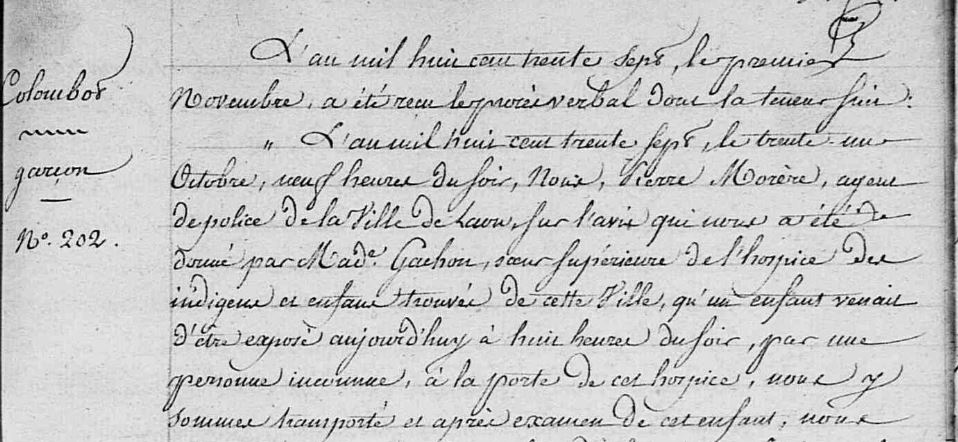 Colombos
garçon
N°. 202.
L'an mil huit cent trente sept, le premier
Novembre, a été reçu le procès verbal dont la teneur suit:
„ L'an mil huit cent trente sept, le trente-un
Octobre, neuf heures du soir, Nous, Pierre Morère, agent
de police de la Ville de Laon, sur l'avis qui nous a été
donné par Made. Gachon, sœur supérieure de l'hospice des
indigens et enfans trouvés de cette Ville, qu'un enfant venait
d'être exposé aujourd'huy à huit heures du soir, par une
personne inconnue, à la porte de cet hospice, nous y
sommes transporté et après examen de cet enfant, nous